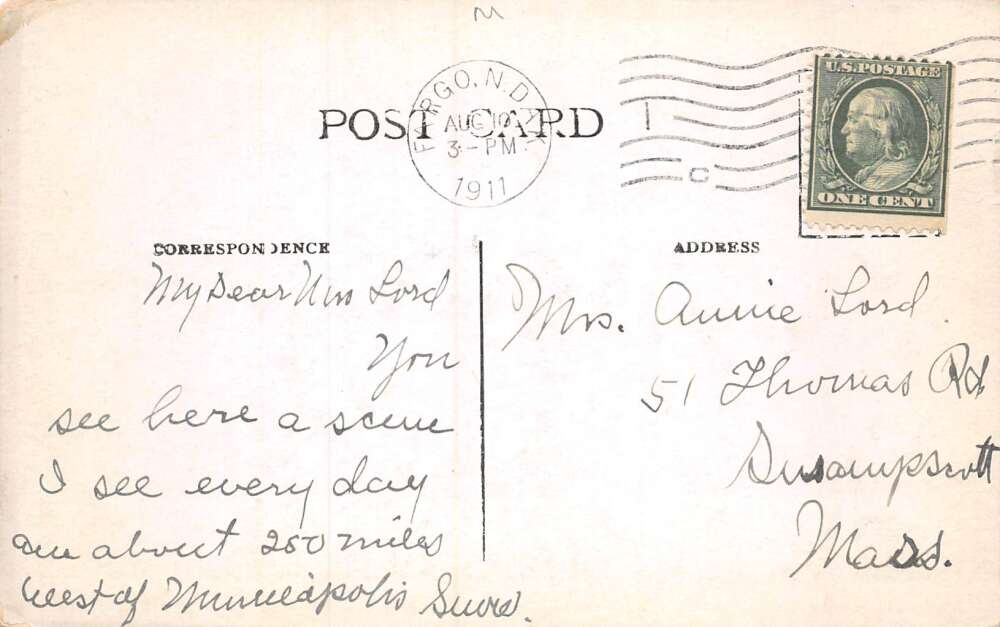 M
FARGO, N.D.
AUG 10
3-PM
1911
U.S. POSTAGE
ONE CENT
POST CARD
CORRESPONDENCE
My Dear Mrs Lord
You
see here a scene
I see every day
am about 250 miles
West of Minneapolis
ADDRESS
Mrs. Annie Lord
51 Thomas Rd
Swampscott
Mass.